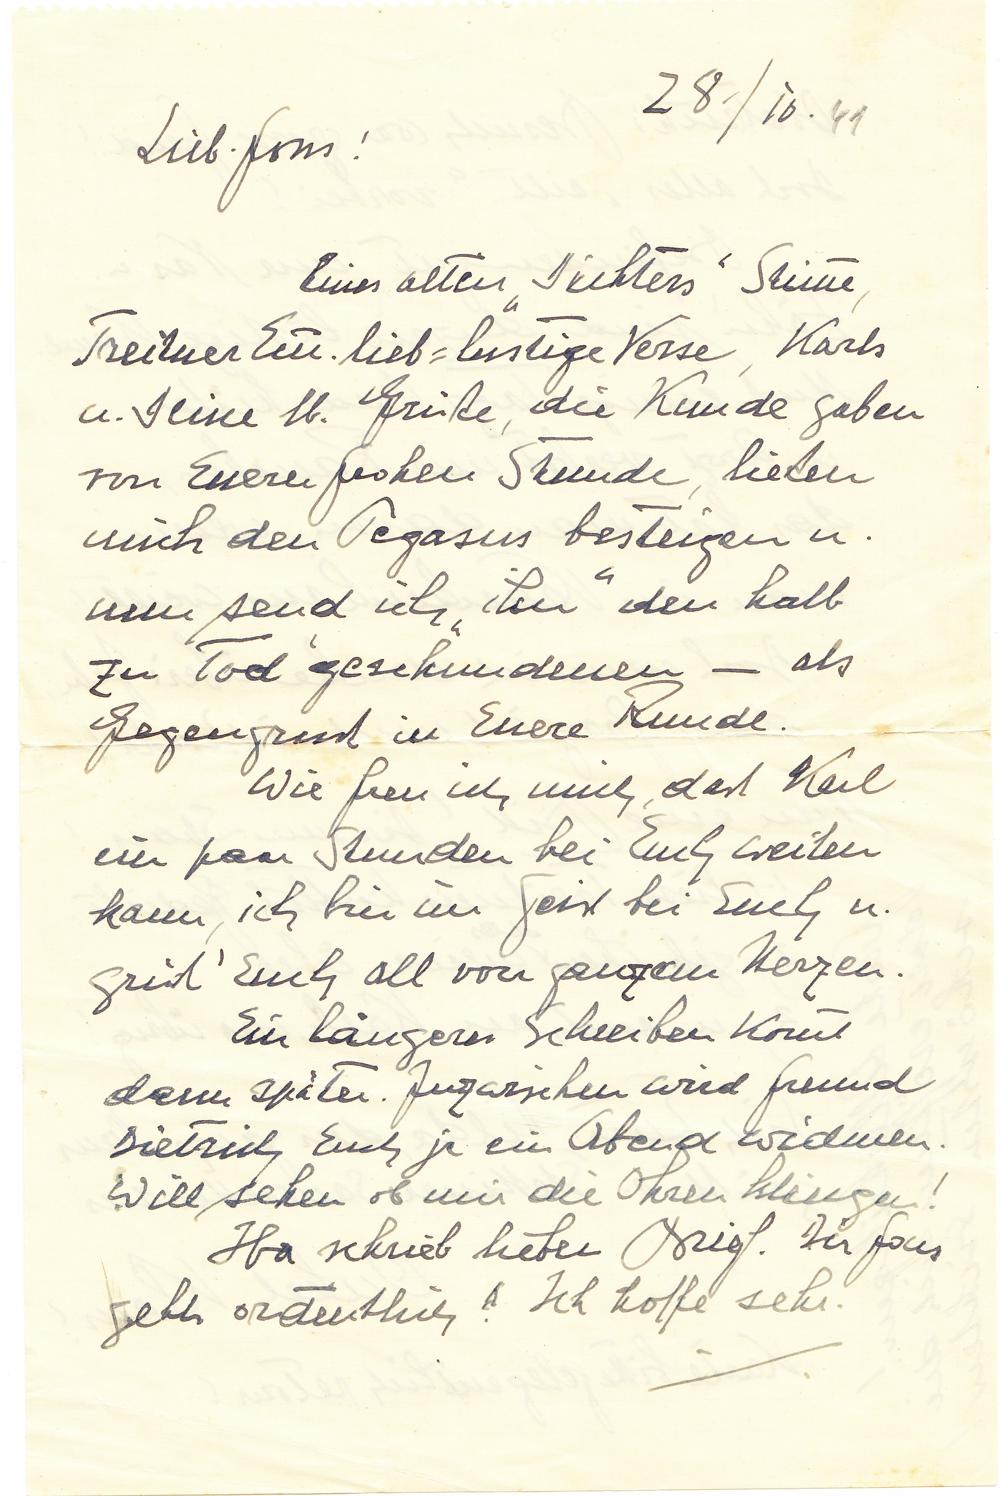 28./10. 41
Lieb. Fons!
Eines alten „Dichters“ Stimme,
Treitner Em. lieb=lustige Verse, Karls
u. Deine lb. Grüße, die Kunde gaben
von Euerer frohen Stunde, ließen
mich den Pegasus besteigen u.
nun send ich „ihn“ den halb
zu Tod geschundenen — als
Gegengruß in Euere Runde.
Wie freu ich mich, daß Karl
ein paar Stunden bei Euch weilen
kann, ich bin im Geist bei Euch u.
grüß' Euch all von ganzem Herzen.
Ein längeres Schreiben kom̅t
dann später. Inzwischen wird Freund
Dietrich Euch je ein Abend widmen.
Will sehen ob mir die Ohren klingen!
schrieb lieben Brief. Dir Fons
gehts ordentlich? Ich hoffe sehr.